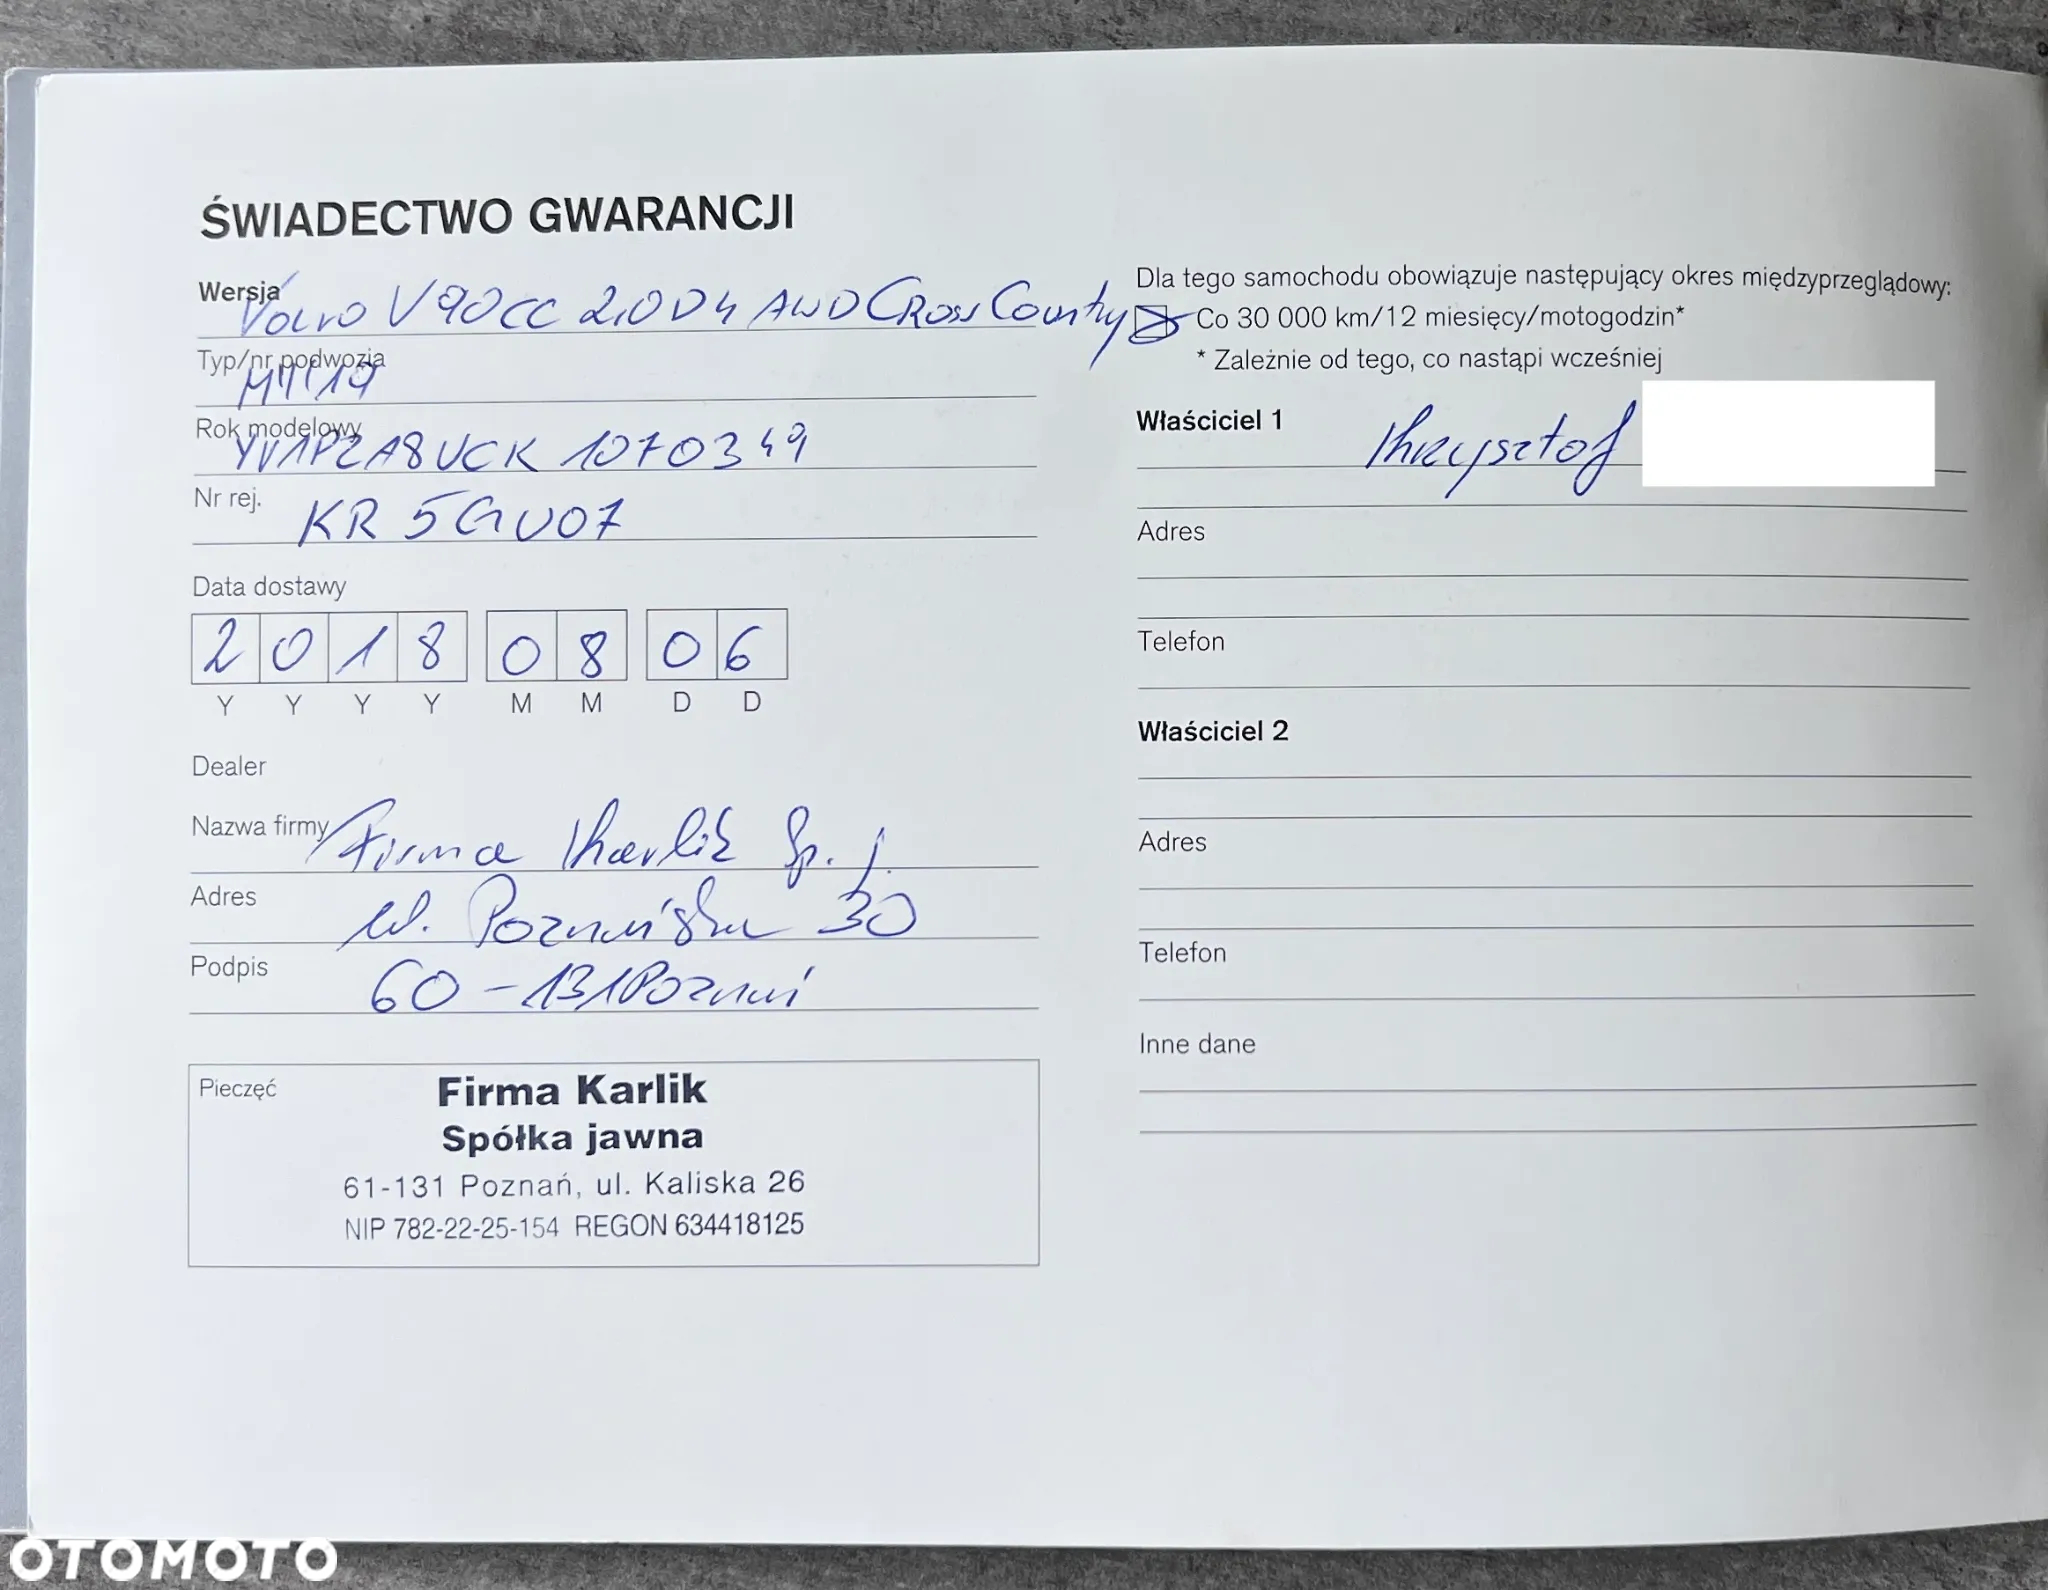 ŚWIADECTWO GWARANCJI
Wersja Volvo V90CC 2,0 D4 AWD Cross Country
Typ/nr podwozia MY'19
Rok modelowy YV1PZA8UCK1070349
Nr rej. KR 5GU07
Data dostawy
2018 08 06
Y Y Y Y M M D D
Dealer
Nazwa firmy Firma Karlik Sp. j.
Adres ul. Poznańska 30
Podpis 60-131 Poznań
Pieczęć
Firma Karlik
Spółka jawna
61-131 Poznań, ul. Kaliska 26
NIP 782-22-25-154 REGON 634418125
Dla tego samochodu obowiązuje następujący okres międzyprzeglądowy:
Co 30 000 km/12 miesięcy/motogodzin*
* Zależnie od tego, co nastąpi wcześniej
Właściciel 1 Krzysztof
Adres
Telefon
Właściciel 2
Adres
Telefon
Inne dane
OTOMOTO